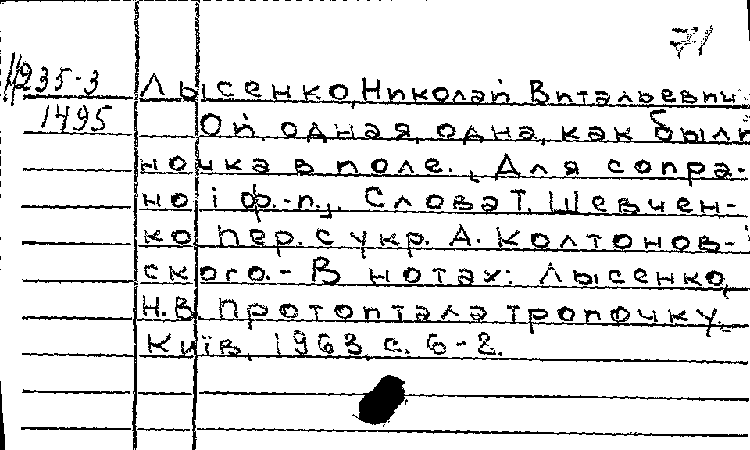 71
Н235-3 Лысенко, Николай Витальевич
1495 Ой, одная, одна, как были
ночка в поле. Для сопра-
но і ф.-п. Слова Т. Шевчен-
ко пер. с укр. А. Колтонов-
ского. - В нотах: Лысенко,
Н.В. Протоптала тропочку.
Київ, 1963, с. 6-2.